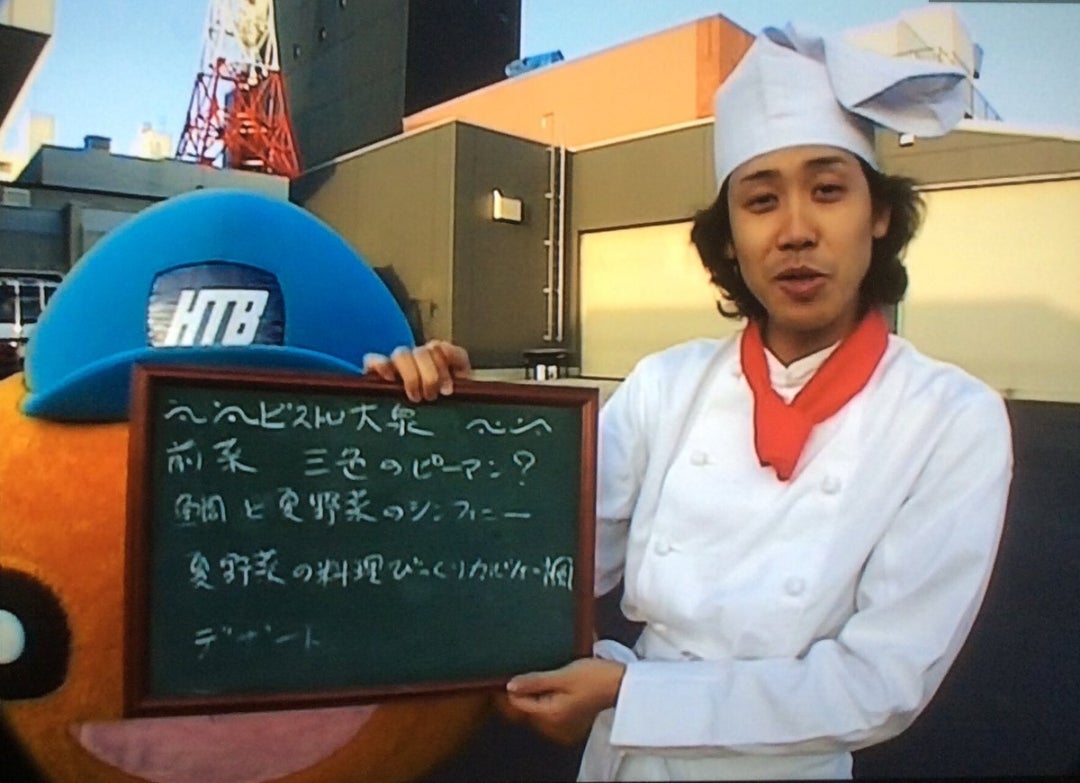 HTB
〜〜ビストロ大泉 〜〜
前菜 三色のピーマン?
鯛と夏野菜のシンフォニー
夏野菜の料理びっくりカルパッチョ風
デザート